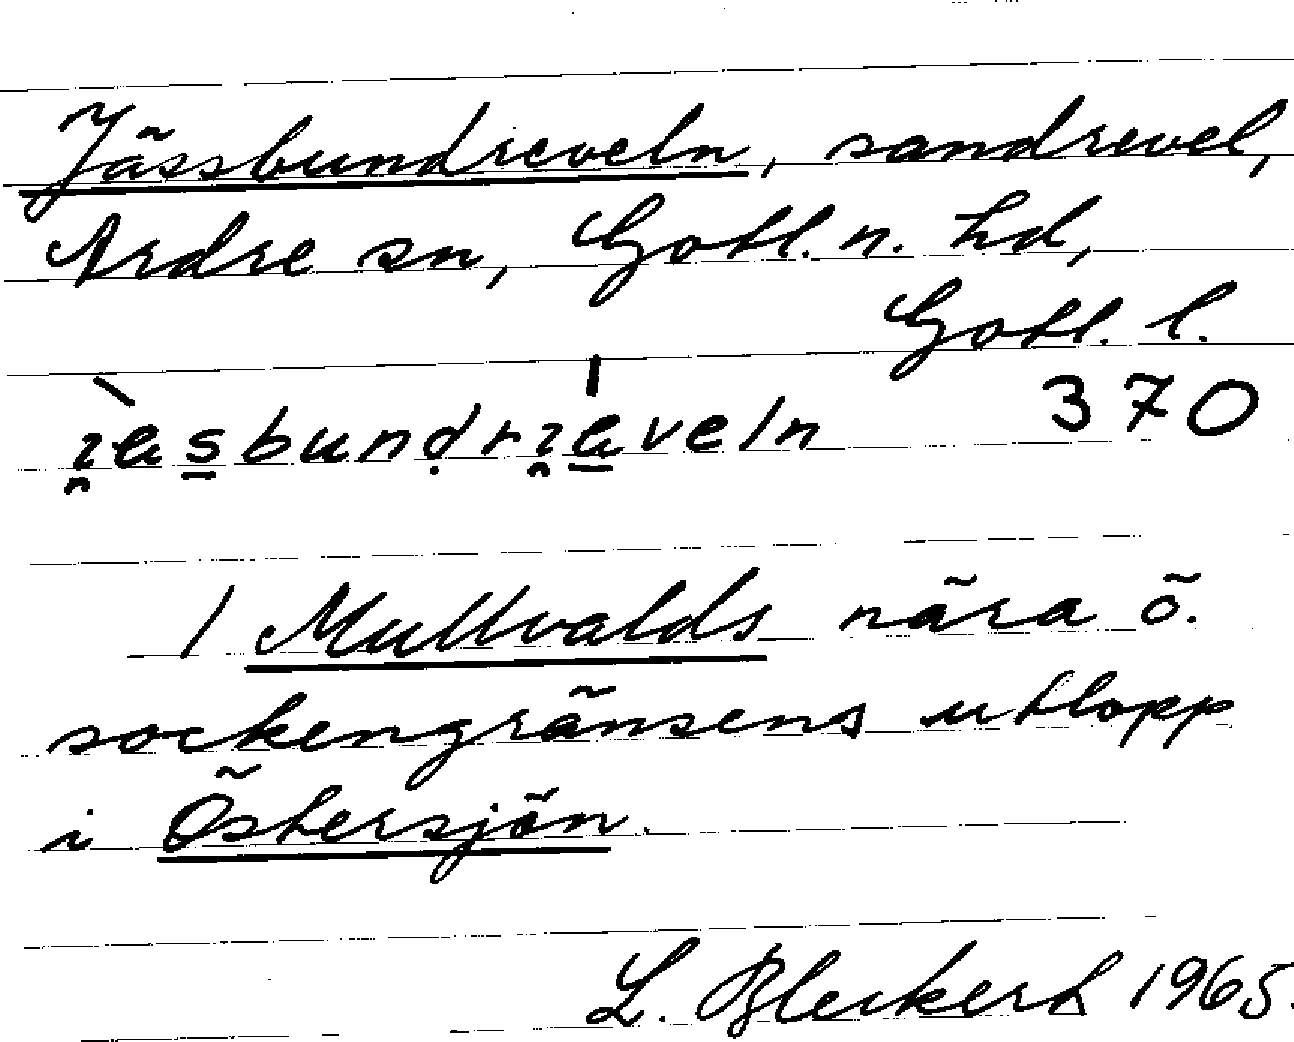 Jässbundreveln, sandrevel,
Ardre sn, Gotl. n. hd,
Gotl. l.
370
I Mullvalds nära ö.
sockengränsens utlopp
i Östersjön.
L. Bleckert 1965.